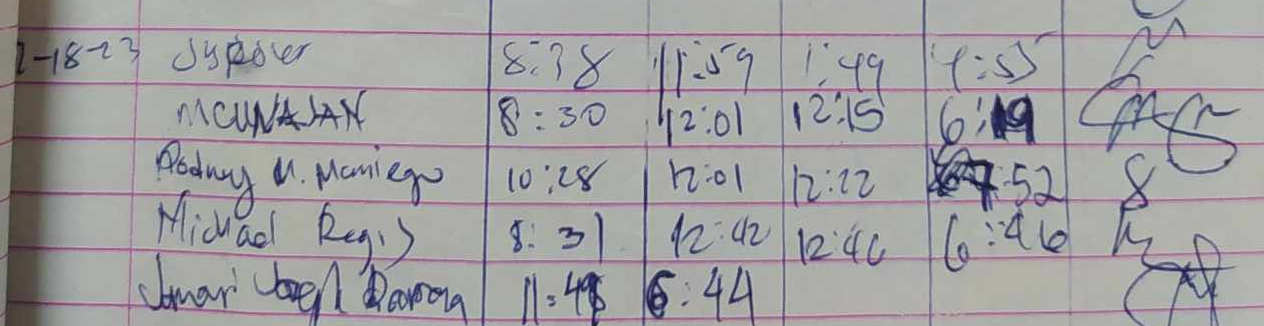 2-18-23 8:38 11:59 1:49 4:55
MCUNAJAN 8:30 12:01 12:15 6:19
Rodney M. Maniego 10:28 12:01 12:22 7:52
Michael Regis 8:31 12:42 12:46 6:46
Jomari 11:48 6:44